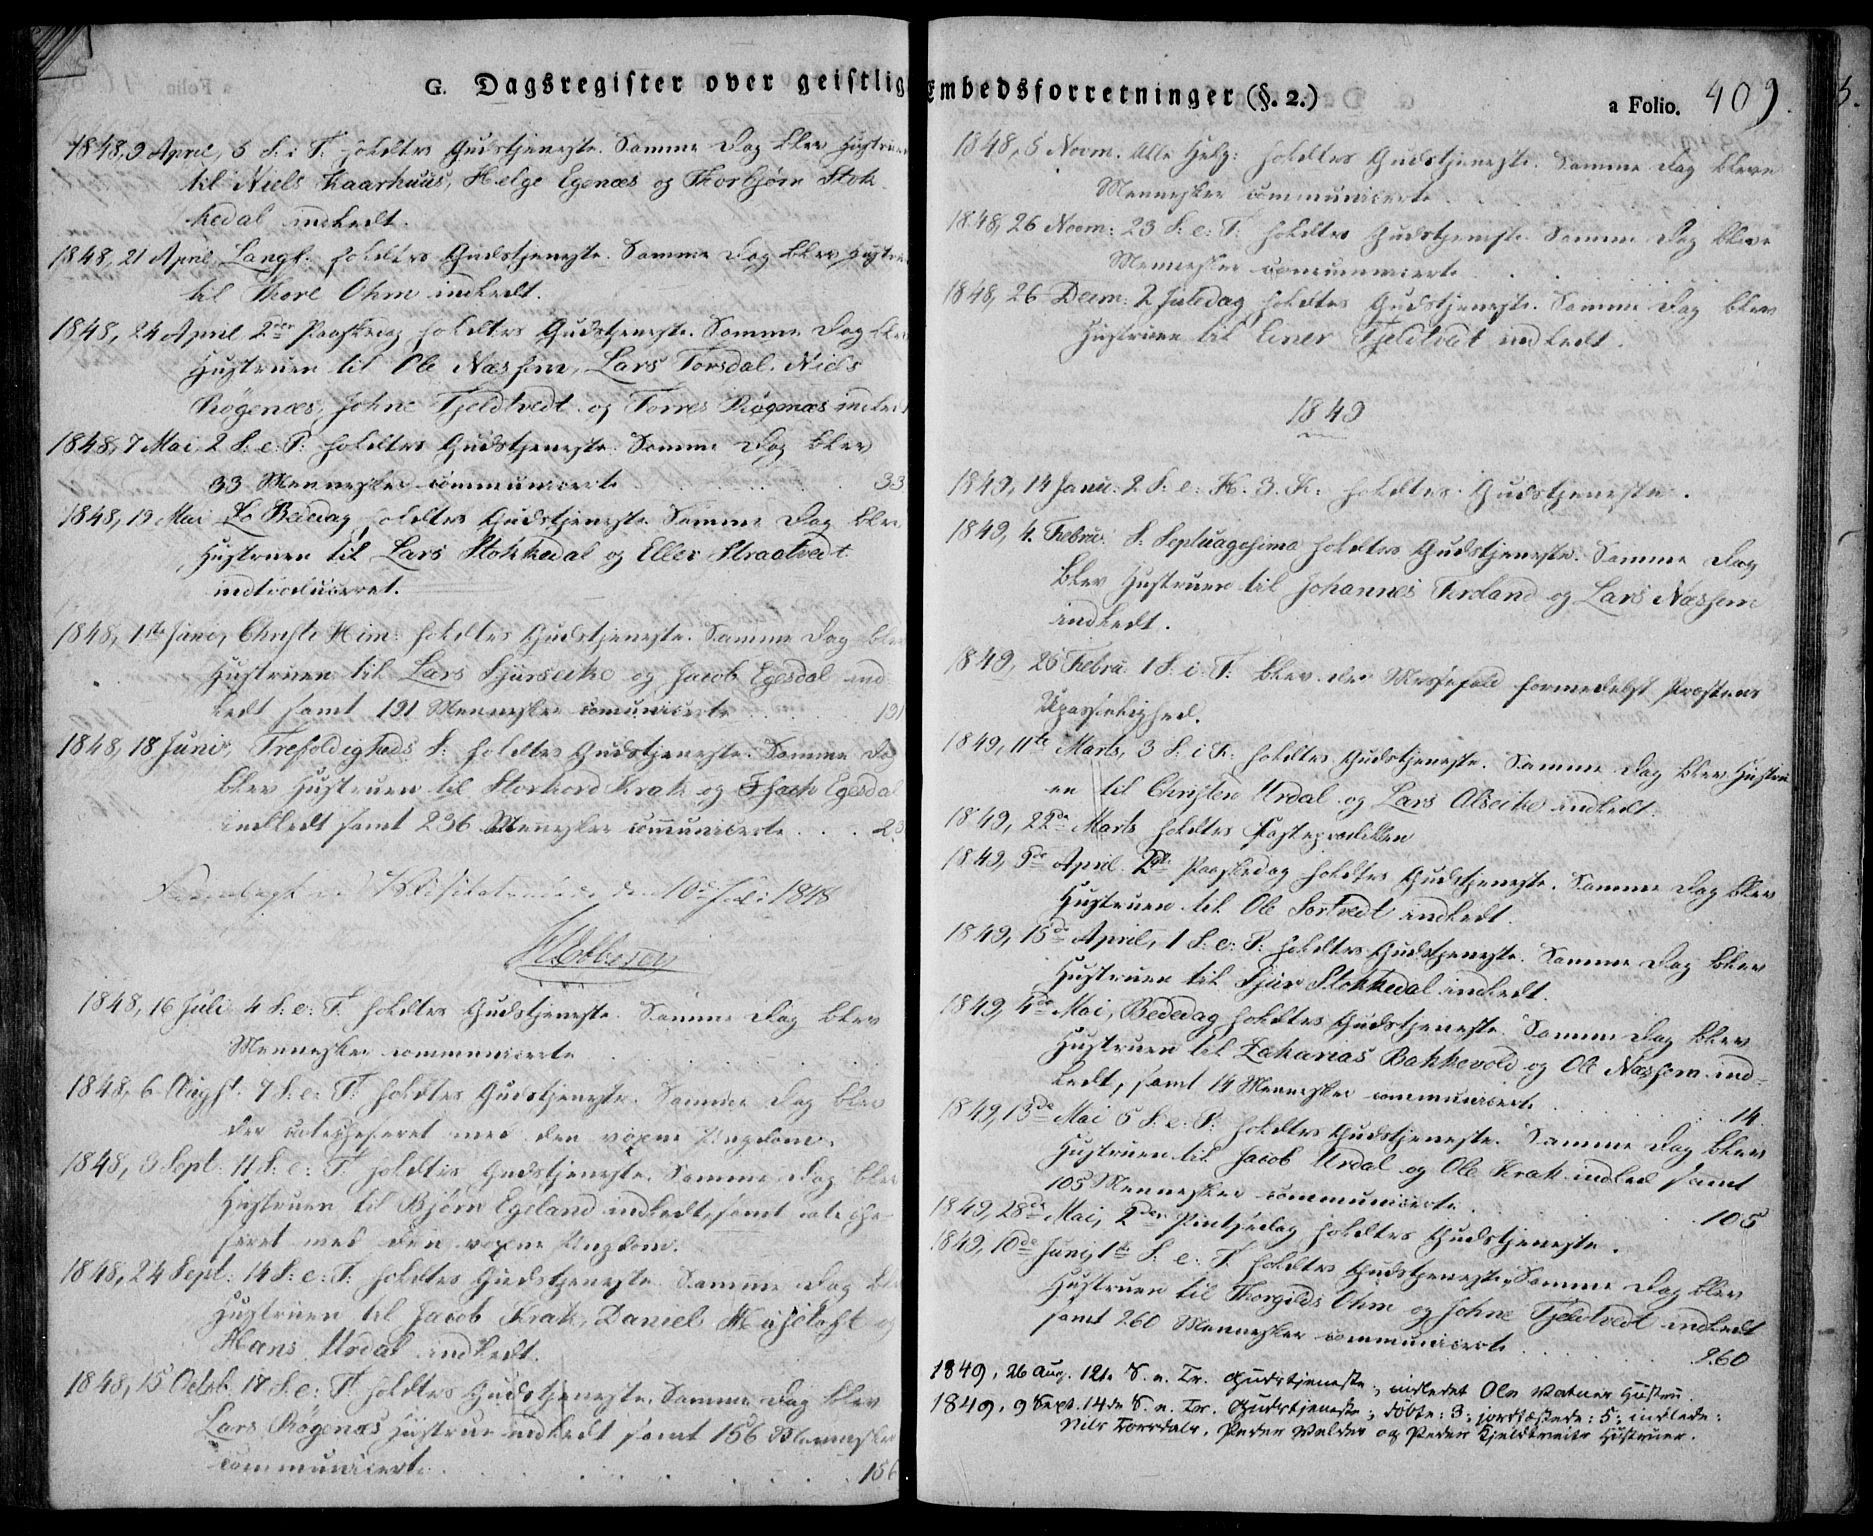 G. Dagsregister over geistlig
1848, 9 April, 5 S. i F. holdtes Gudstjeneste. Samme Dag blev Hustruen
til Niels Kaarhuus, Helge Egenæs og Thorbjørn Stok-
kedal indledt.
1848, 21 April, Langf: holdtes Gudstjeneste. Samme Dag blev Hustru
til Thore Ohm indledt.
1848, 24 April 2den Paaskedag holdtes Gudstjeneste. Samme Dag blev
Hustruen til Ole Næshem, Lars Torsdal, Niels
Røgenæs, Johne Tjeldtvedt og Torres Røgenæs indled
1848, 7 Mai, 2 S. e. P. holdtes Gudstjeneste. Samme Dag blev
33 Mennesker communicerte . . . 33
1848, 19 Mai Bededag holdtes Gudstjeneste. Samme Dag blev
Hustruen til Lars Stokkedal og Eller Straatvedt
indtroduceret.
1848, 1ste Juni, Christi Him: holdtes Gudstjeneste. Samme Dag blev
Hustruen til Lars Sjurseike og Jacob Egesdal ind
ledt samt 191 Mennesker comunicerte . . . 191
1848, 18 Juni, Trefoldigheds S: holdtes Gudstjeneste. Samme Dag
blev Hustruen til Storkord Krak og Isach Egesdal
indledt samt 236 Mennesker comunicerte . . . 23
Fremlagt ved Visitatsen den 10de Juli 1848

1848, 16 Juli 4 S. e. T. holdtes Gudstjeneste. Samme Dag blev
Mennesker communicerte . . .
1848, 6 Augst. 7 S. e. T. holdtes Gudstjeneste. Samme Dag blev
der catechiseret med den voxne Ungdom.
1848, 3 Sept: 11 S. e. T. holdtes Gudstjeneste. Samme Dag blev
Hustruen til Bjørn Egeland indledt, samt cateche-
seret med den voxne Ungdom.
1848, 24 Sept: 14 S. e. T. holdtes Gudstjeneste. Samme Dag ble
Hustruen til Jacob Krak, Daniel og
Hans Urdal indledt.
1848, 15 Octob. 17 S. e. T. holdtes Gudstjeneste. Samme Dag blev
Lars Røgenæs Hustrue indledt samt 156 Mennesker
communicerte . . . 156
Embedsforretninger (§. 2.) a Folio. 409.
1848, 5 Novm. Alle Helg: holdtes Gudstjeneste. Samme Dag bleve
Mennesker communicerte . . .
1848, 26 Novm: 23 S. e. T. holdtes Gudstjeneste. Samme Dag bleve
Mennesker communicerte . . .
1848, 26 Decm: 2 Juledag holdtes Gudstjeneste. Samme Dag blev
Hustruen til Einer Tjeldtvedt indledt.
1849
1849, 14 Janu: 2 S. e. H. 3. K. holdtes Gudstjeneste.
1849, 4. Febru. S. Septuagesima holdtes Gudstjeneste. Samme Dag
blev Hustruen til Johannes Førland og Lars Næshem
indledt.
1849, 25 Febru 1 S. i F. blev der Messefald formedelst Præstens
Upasselighed.
1849, 11te Marts, 3 S. i F. holdtes Gudstjeneste. Samme Dag blev Hustru
en til Christen Urdal og Lars Alseike indledt.
1849, 22de Marts holdtes Fasteprædiken
1849, 9de April 2den Paaskedag holdtes Gudstjeneste. Samme Dag blev
Hustruen til Ole Sortvedt indledt.
1849, 15de April, 1 S. e. P. holdtes Gudstjeneste. Samme Dag blev
Hustruen til Sjur Stokkedal indledt.
1849, 4de Mai, Bededag holdtes Gudstjeneste. Samme Dag blev
Hustruen til Zakarias Bakkevold og Ole Næshem ind-
ledt, samt 14 Mennesker communicerte . . . 14
1849, 13de Mai 5 S. e. P. holdtes Gudstjeneste. Samme Dag blev
Hustruen til Jacob Urdal og Ole Krak indled samt
105 Mennesker communicerte . . . 105
1849, 28de Mai, 2den Pintsedag holdtes Gudstjeneste.
1849, 10de Juni 1te S. e. T. holdtes Gudstjeneste, Samme Dag blev
Hustruen til Thorgilds Ohm og Johne Tjeldtvedt indledt
samt 260 Mennesker communicerte . . . 260
1849, 26 Aug. 12te S. e. Tr. Gudstjeneste, indledet Ole Vatnes Hustru.
1849, 9 Sept. 14de S. e. Tr. Gudstjeneste; døbte: 3; jordfæstede: 5; indlede:
Nils Torrdals, Peder Veldes og Peder Tjeldtveits Hustruer.